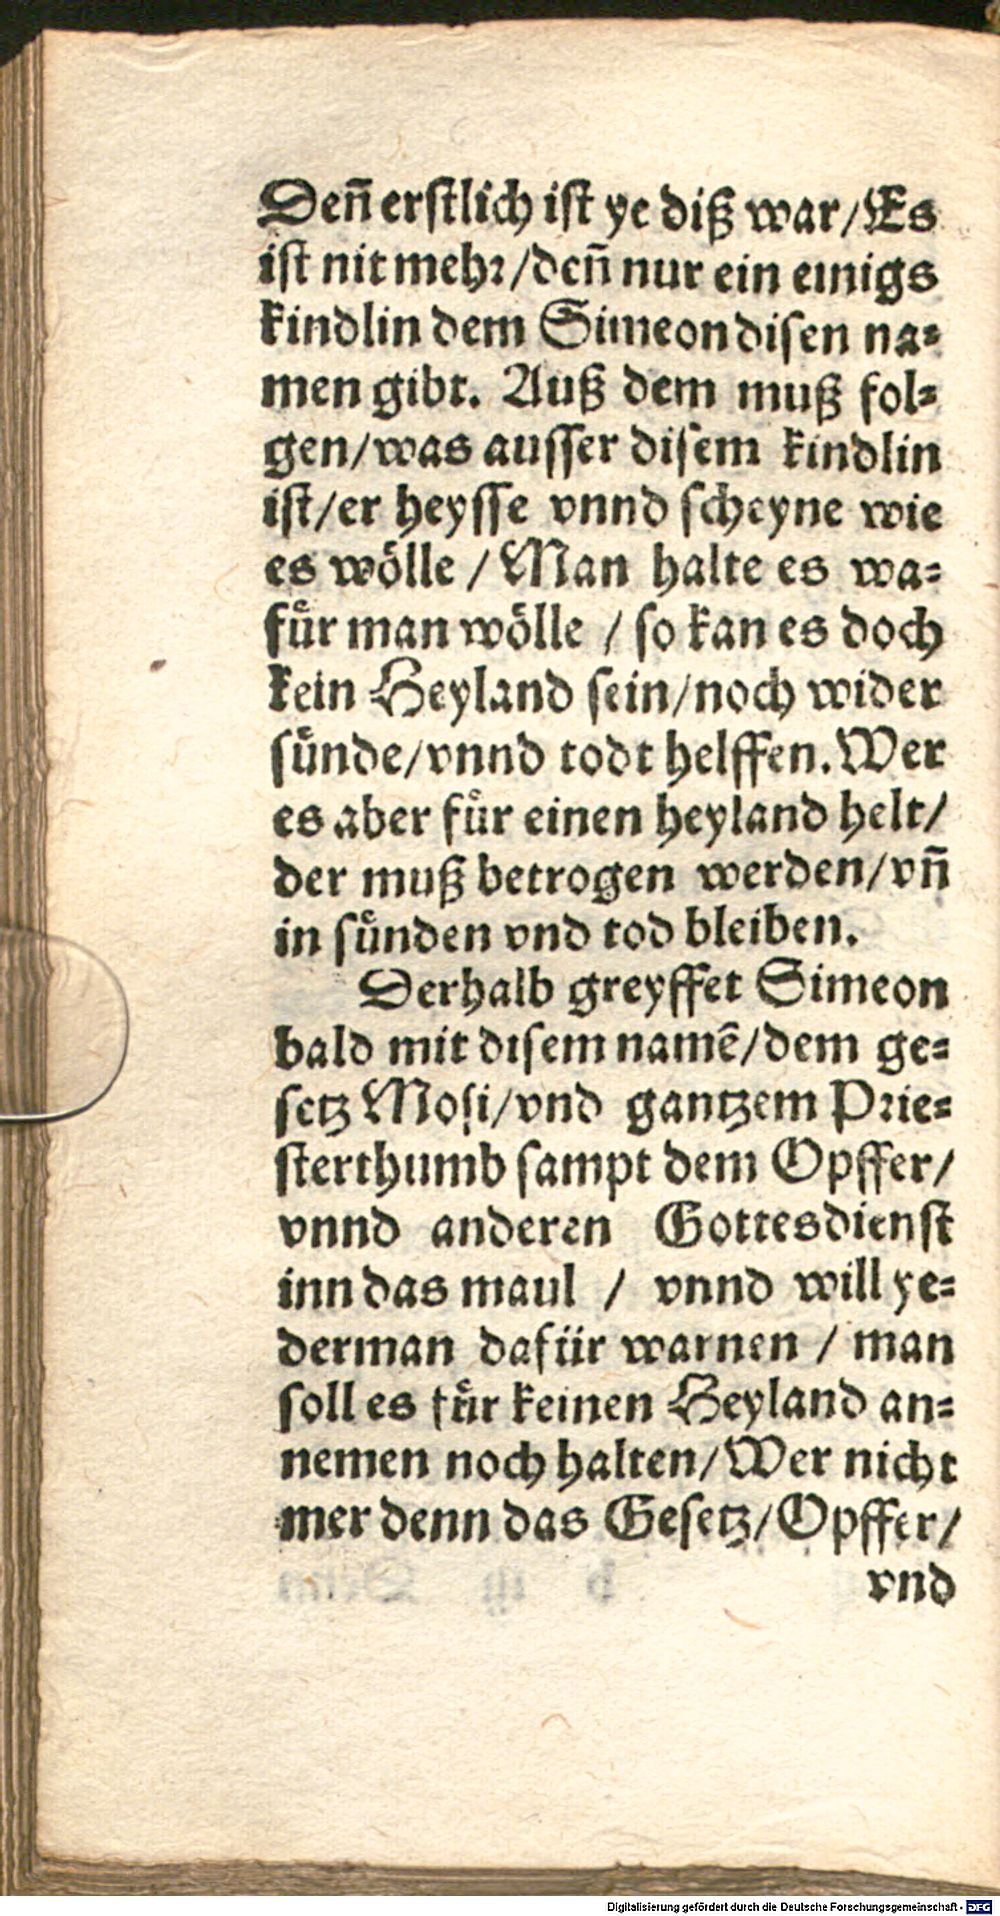 Deñ erstlich ist ye diß war/Es
ist nit mehr/deñ nur ein einigs
kindlin dem Simeon disen na=
men gibt. Auß dem muß fol=
gen/was ausser disem kindlin
ist/er heysse vnnd scheyne wie
es wölle / Man halte es wa=
für man wölle / so kan es doch
kein Heyland sein/noch wider
sünde/vnnd todt helffen. Wer
es aber für einen heyland helt/
der muß betrogen werden/vñ
in sünden vnd tod bleiben.
Derhalb greyffet Simeon
bald mit disem namẽ/dem ge=
setz Mosi/vnd gantzem Prie=
sterthumb sampt dem Opffer/
vnnd anderen Gottesdienst
inn das maul / vnnd will ye=
derman dafür warnen / man
soll es für keinen Heyland an=
nemen noch halten/Wer nicht
mer denn das Gesetz/Opffer/
vnd
Digitalisierung gefördert durch die Deutsche Forschungsgemeinschaft - DFG